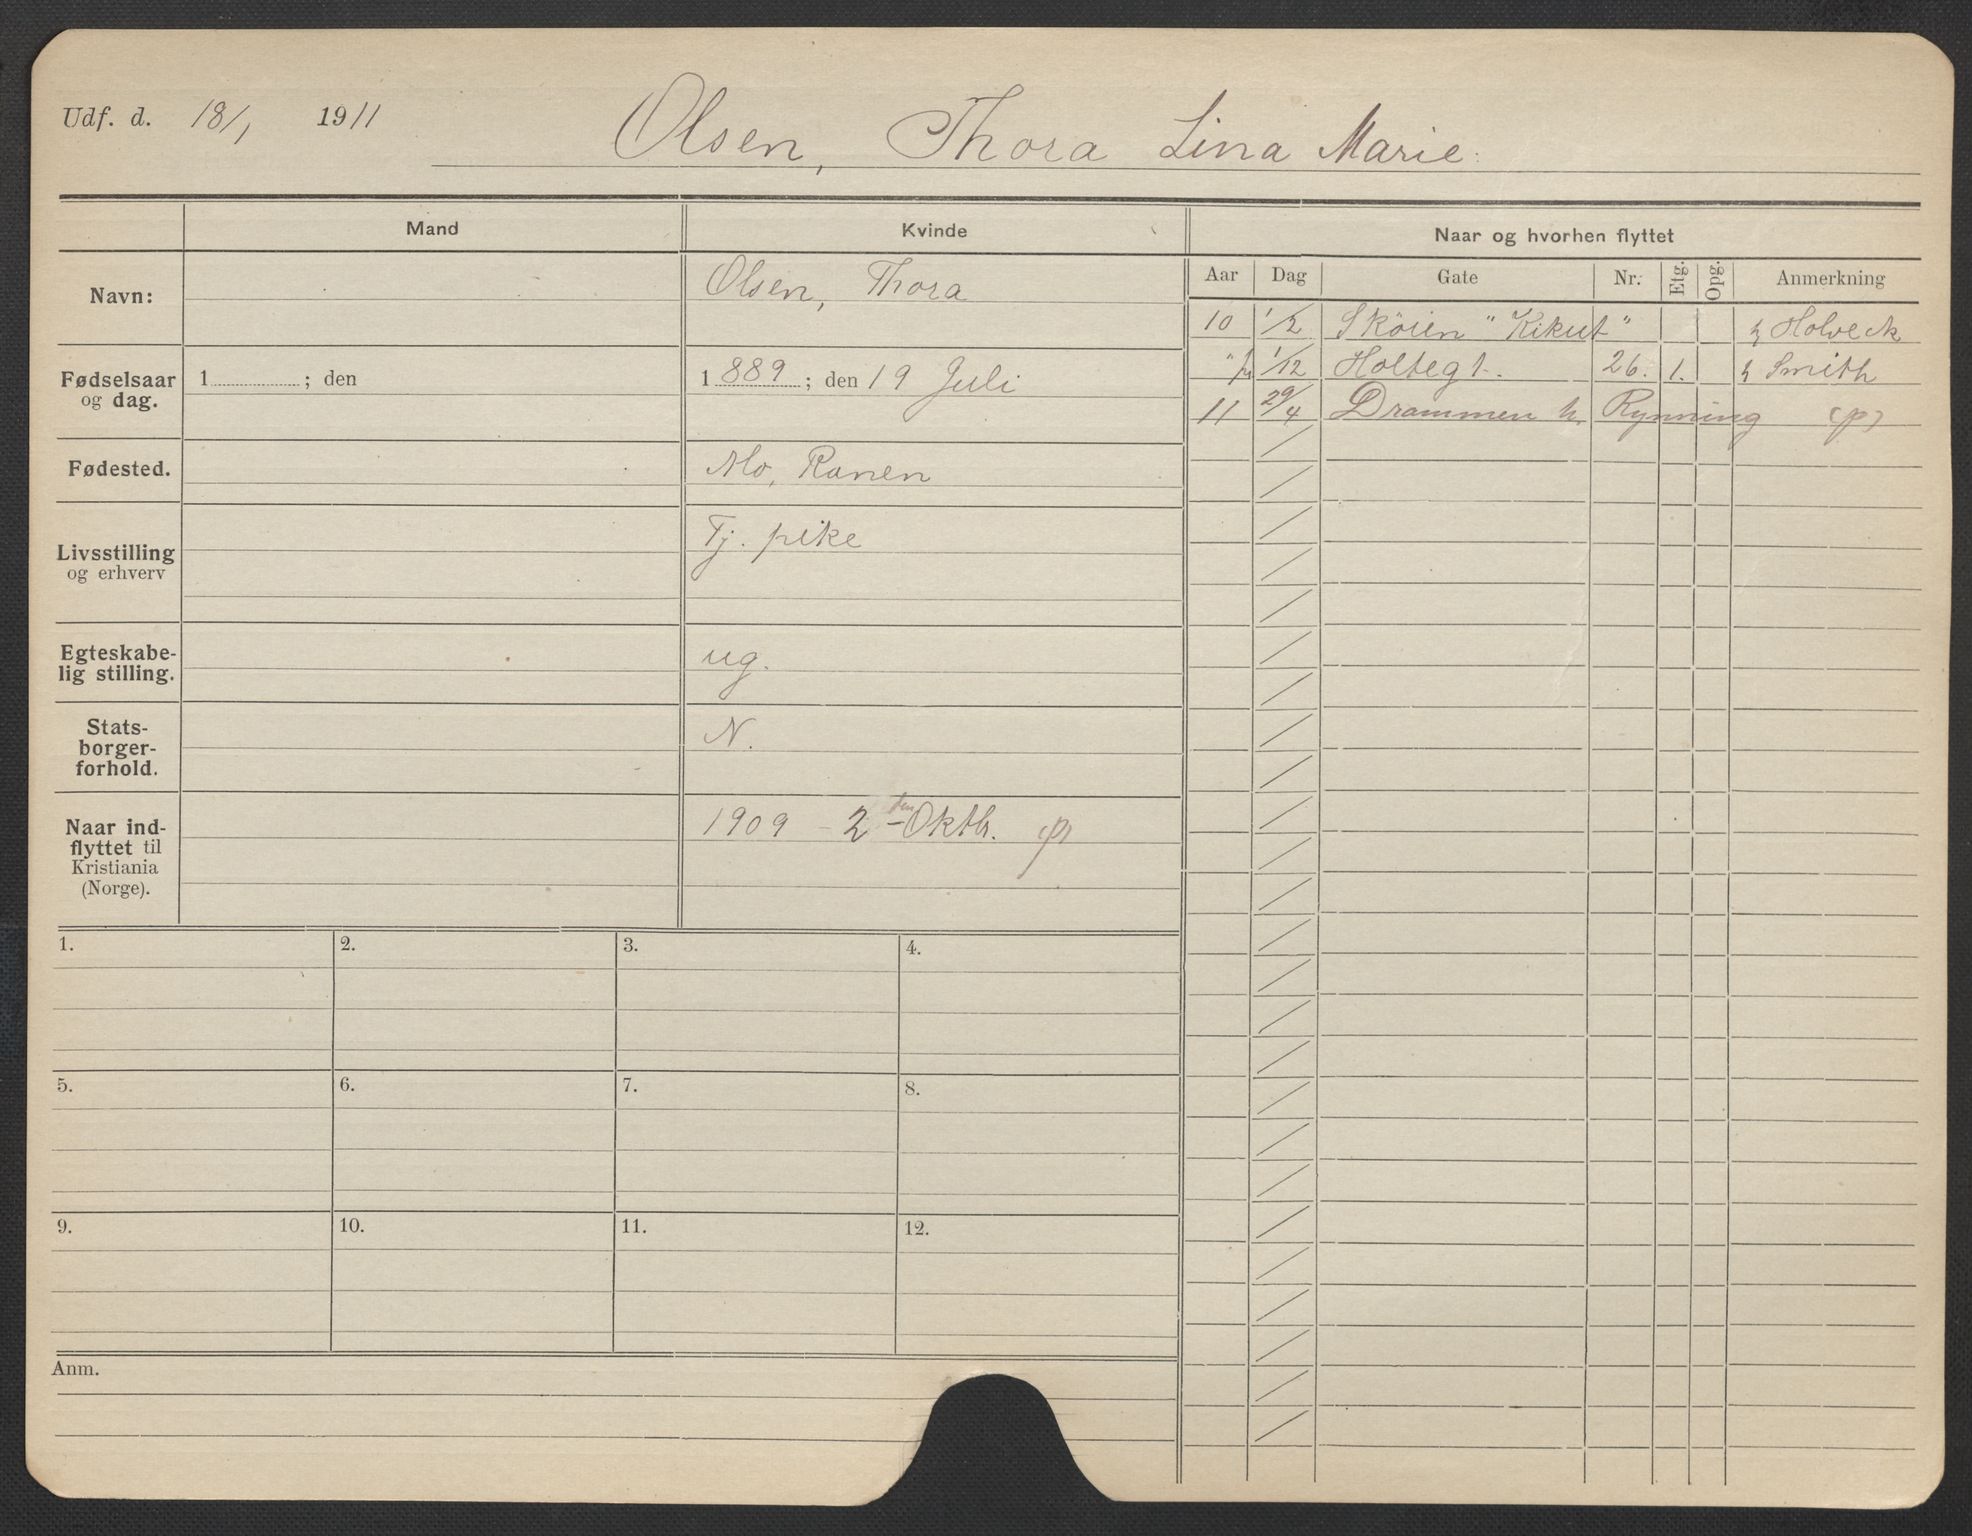 Udf. d. 18/1 1911 Olsen, Thora Lina Marie.
Mand Kvinde Naar og hvorhen flyttet
Aar Dag Gate Nr. Etg. Opg. Anmerkning
Navn: Olsen, Thora
10 1/2 Sköien "Kikut" Holveck
" 1/12 Holtegt. 26. 1. Smith
11 29/4 Drammen h. Rynning (p)
Fødselsaar
og dag.
1 ; den
1889 ; den 19 Juli
Fødested. Mo, Ranen
Livsstilling
og erhverv
Tj. pike
Egteskabe-
lig stilling.
ug.
Stats-
borger-
forhold.
N.
Naar ind-
flyttet til
Kristiania
(Norge).
1909 - 2den Oktbr. (p)
1. 2. 3. 4.
5. 6. 7. 8.
9. 10. 11. 12.
Anm.